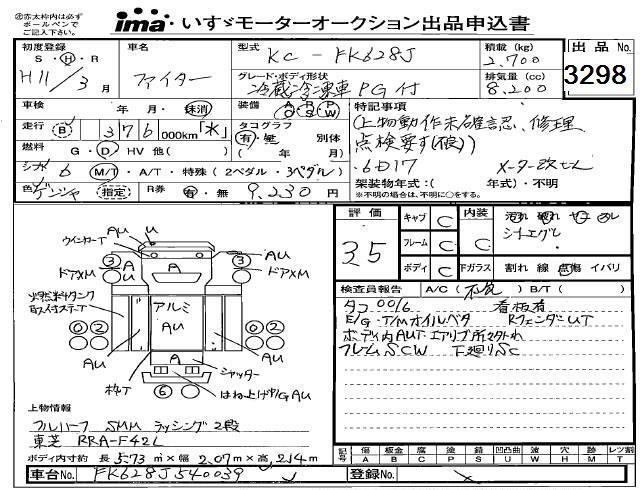 ②赤太枠内は必ず
ボールペンで
ご記入下さい。
ima いすゞモーターオークション出品申込書
初度登録
S・H・R
H11/3月
車名
ファイター
型式
KC-FK628J
積載(kg)
2,700
出品No.
3298
グレード・ボディ形状
冷蔵冷凍車 PG付
排気量(cc)
8,200
車検
年・月・抹消
装備
A P P
C S W
特記事項
(上物動作未確認、修理
点検要す(渡))
6D17
メーター改ざん
走行
B 376 000km「不」
タコグラフ
有・無
別体
( 年 月)
燃料
G・D HV 他( )
シフト
6 M/T・A/T・特殊(2ペダル・3ペダル)
架装物年式:( 年式)・不明
※不明の場合は、不明に○をする。
色
ゲンジャ 指定
R券
有・無
9,230円
評価
3.5
キャブ C
フレーム C
ボディ C
内装 C
汚れ 破れ ヤニ スレ
シートエグレ
下ガラス
割れ 線 点傷 イバリ
検査員報告
A/C(不良) B/T( )
タコ0016 看板有
E/G・T/Mオイルベタ RフェンダーUT
ボディ内AUT
フレームSCW 下廻りSC
AU
u
ウインカーT
A
AU
3
A
3
ドアXM
u
ドアXM
A
アルミ
AU
0 2
2 0
AU
AU
A
シャッター
枠T
6
はね上げP/G AU
上物情報
フルハーフ 5MM ラッシング2段
東芝 RRA-F42L
ボディ内寸約 長5.73m×幅2.07m×高2.14m
記号
傷 板金 腐 塗 錆 凹凸曲 波 穴 跡 レツ割
A B C P S U W H M T
車台No.
FK628J540039
登録No.